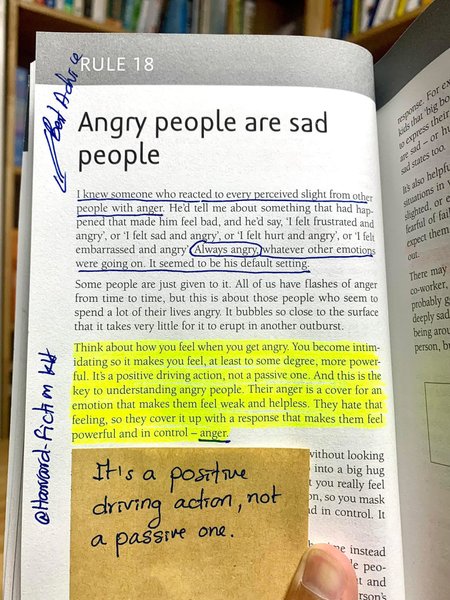 RULE 18
Best Advice
Angry people are sad
people
I knew someone who reacted to every perceived slight from other
people with anger. He'd tell me about something that had hap-
pened that made him feel bad, and he'd say, 'I felt frustrated and
angry', or 'I felt sad and angry', or 'I felt hurt and angry', or 'I felt
embarrassed and angry'. Always angry, whatever other emotions
were going on. It seemed to be his default setting.
Some people are just given to it. All of us have flashes of anger
from time to time, but this is about those people who seem to
spend a lot of their lives angry. It bubbles so close to the surface
that it takes very little for it to erupt in another outburst.
Think about how you feel when you get angry. You become intim-
idating so it makes you feel, at least to some degree, more power-
ful. It's a positive driving action, not a passive one. And this is the
key to understanding angry people. Their anger is a cover for an
emotion that makes them feel weak and helpless. They hate that
feeling, so they cover it up with a response that makes them feel
powerful and in control – anger.
without looking
into a big hug
t you really feel
on, so you mask
nd in control. It
me instead
le peo-
t and
rson's
It's a positive
driving action, not
a passive one.
response. For ex
kids that 'big bo
to express their
are sad – or hu
sad states too.
It's also helpfu
situations in y
slighted, or e
fearful of fail
expect them
out.
There may
co-worker,
probably g
deeply sad
being arou
person, bu